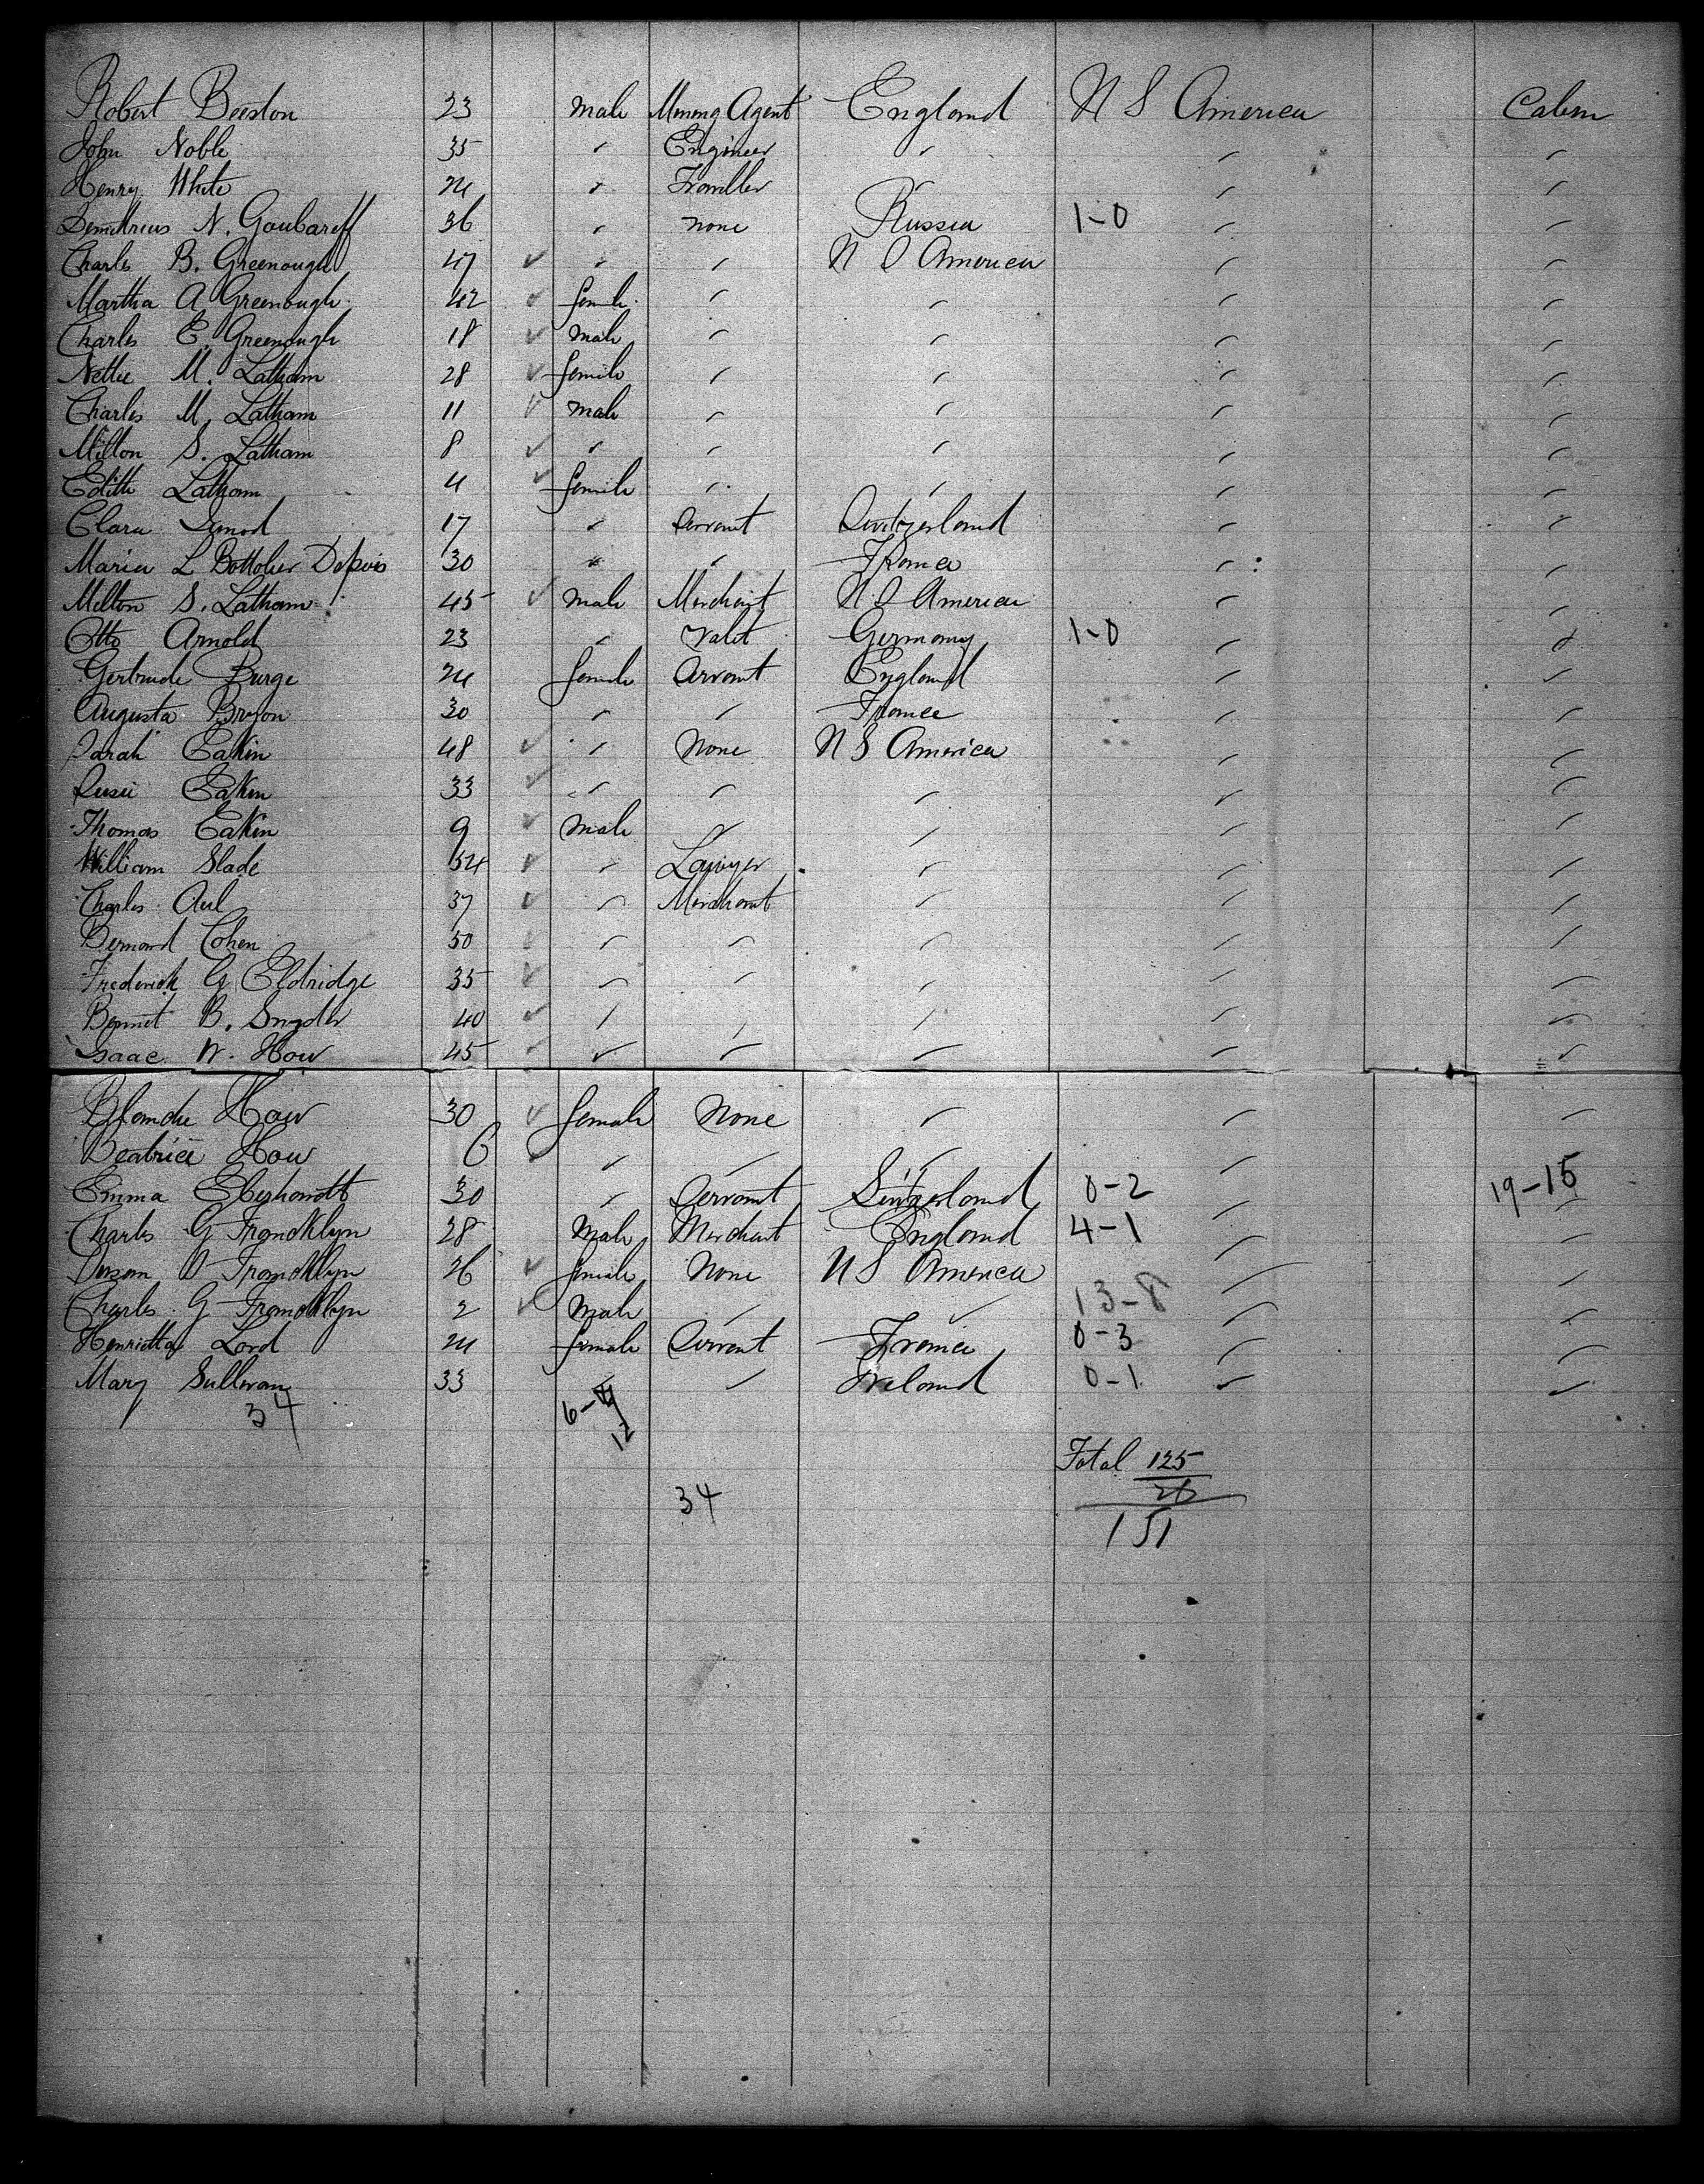 Robert Beeston 23 Male Mining Agent England U S America Cabin
John Noble 35 " Engineer " " "
Henry White 24 " Traveller " "
Demetrius N. Goubareff 36 " none Russia 1-0 " "
Charles B. Greenough 47 ✓ " " U S America " "
Martha A Greenough 42 ✓ female " " " "
Charles E. Greenough 18 ✓ Male " " " "
Nettie M. Latham 28 ✓ female " " " "
Charles M. Latham 11 ✓ Male " " " "
Milton S. Latham 8 ✓ " " " " "
Edith Latham 4 ✓ female " " " "
Clara 17 " Servant Switzerland " "
Maria L 30 " " France " "
Milton S. Latham 45 ✓ Male Merchant U S America " "
Otto Arnold 23 " Valet Germany 1-0 " "
Gertrude Burge 24 female Servant England " "
Augusta 30 " " France " "
Sarah Eakin 48 ✓ " None U S America " "
Susie Eakin 33 ✓ " " " " "
Thomas Eakin 9 ✓ Male " " " "
William Slade 54 ✓ " Lawyer " " "
Charles 37 ✓ " Merchant " " "
Bernard Cohen 50 ✓ " " " " "
Frederick G Eldridge 35 ✓ " " " " "
Bennet B. Snyder 40 ✓ " " " " "
Isaac W. How 45 ✓ " " " " "
Blanche How 30 ✓ female None " " "
Beatrice How 6 ✓ " " " "
Emma 30 " Servant Switzerland 0-2 " 19-15 "
Charles G Francklyn 28 Male Merchant England 4-1 " "
Susan S Francklyn 26 ✓ female None U S America " "
Charles G Francklyn 2 ✓ Male " " 13-8 " "
Henrietta Lord 24 female Servant France 0-3 " "
Mary Sullivan 33 " " Ireland 0-1 " "
34 6-
12
Total 125
34 26
151